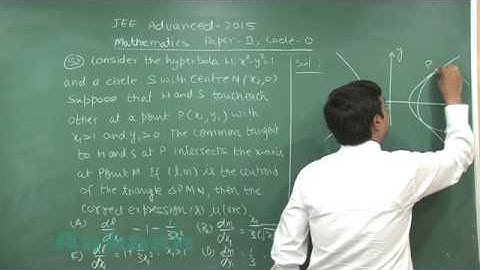 JEE Advanced-2015
Mathematics Paper-II, Code-0
152) Consider the hyperbola H: x²-y²=1
and a circle S with Centre N(x₂,0)
Suppose that H and S touch each
other at a point P(x₁,y₁) with
x₁>1 and y₁>0 The common tangent
to H and S at P intersects the x-axis
at point M. If (l,m) is the centroid
of the triangle ΔPMN, then the
Correct expression(s) is (are)
(A) dl/dx₁ = 1 - 1/3x₁² (B) dm/dx₁ = x₁/3(√x₁
(C) dl/dx₁ = 1 + 1/3x₁², x₁>1 (D) dm/dy₁ = 1/3
Sol:
y
P